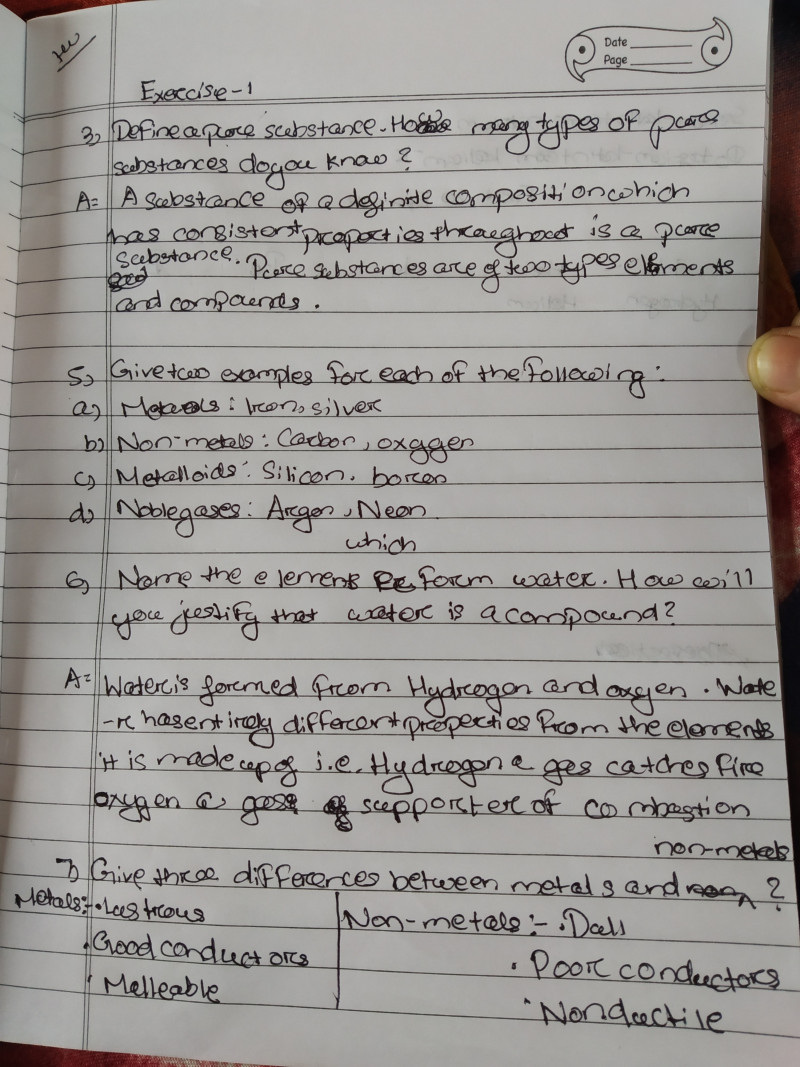 Date
Page
Exercise-1
3) Define a pure substance. How many types of pure
substances do you know?
A= A substance of a definite composition which
has consistent properties throughout is a pure
substance. Pure substances are of two types elements
and compounds.
5) Give two examples for each of the following:
a) Metals: Iron, silver
b) Non-metals: Carbon, oxygen
c) Metalloids: Silicon, boron
d) Noble gases: Argon, Neon
which
6) Name the elements form water. How will
you justify that water is a compound?
A= Water is formed from Hydrogen and oxygen. Wate
-r has entirely different properties from the elements
it is made up of i.e. Hydrogen a gas catches fire
oxygen a gas supporter of combustion
non-metals
7) Give three differences between metals and ^ ?
Metals:- • Lustrous
• Good conductors
• Melleable
Non-metals:- • Dull
• Poor conductors
• Nonductile